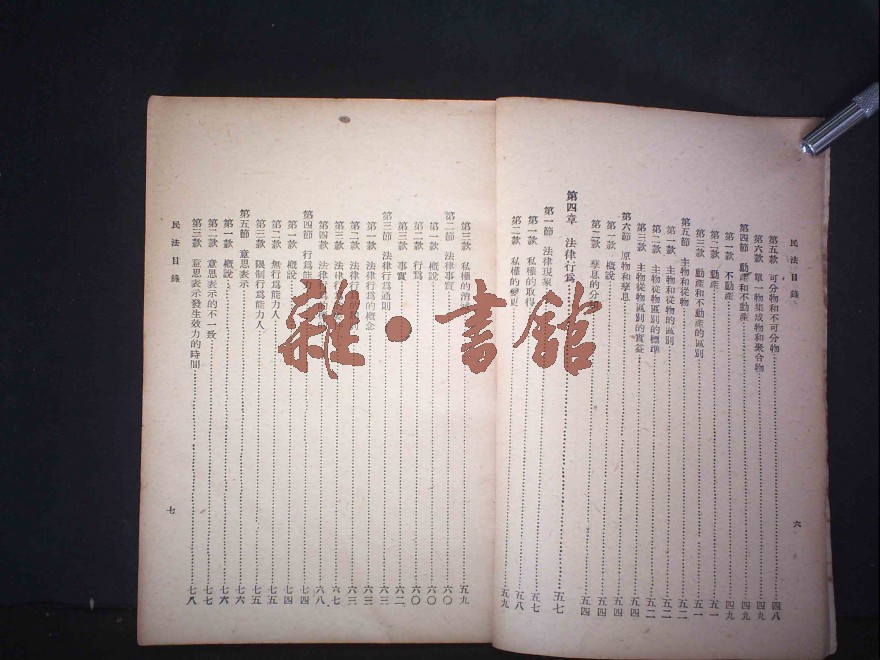 民法目錄
第五款 可分物和不可分物 四八
第六款 單一物集成物和聚合物 四九
第四節 動產和不動產 四九
第一款 不動產 四九
第二款 動產 五一
第三款 動產和不動產的區別 五一
第五節 主物和從物 五二
第一款 主物和從物的區別 五二
第二款 主物從物區別的標準 五二
第三款 主物從物區別的實益 五四
第六節 原物和孳息 五四
第一款 概說 五四
第二款 孳息的分 五四
第四章 法律行為 五七
第一節 法律現象
第一款 私權的取得 五七
第二款 私權的變更 五八
六
第三款 私權的消 五九
第二節 法律事實 六〇
第一款 概說 六〇
第二款 行為 六〇
第三款 事實 六二
第三節 法律行為通則 六三
第一款 法律行為的概念 六三
第二款 法律行為的 六三
第三款 法律行 六七
第四款 法律行 六八
第四節 行為能 七四
第一款 概說 七四
第二款 無行為能力人 七五
第三款 限制行為能力人 七五
第五節 意思表示 七六
第一款 概說 七六
第二款 意思表示的不一致 七七
第三款 意思表示發生效力的時間 七八
民法目錄
七
雜·書館